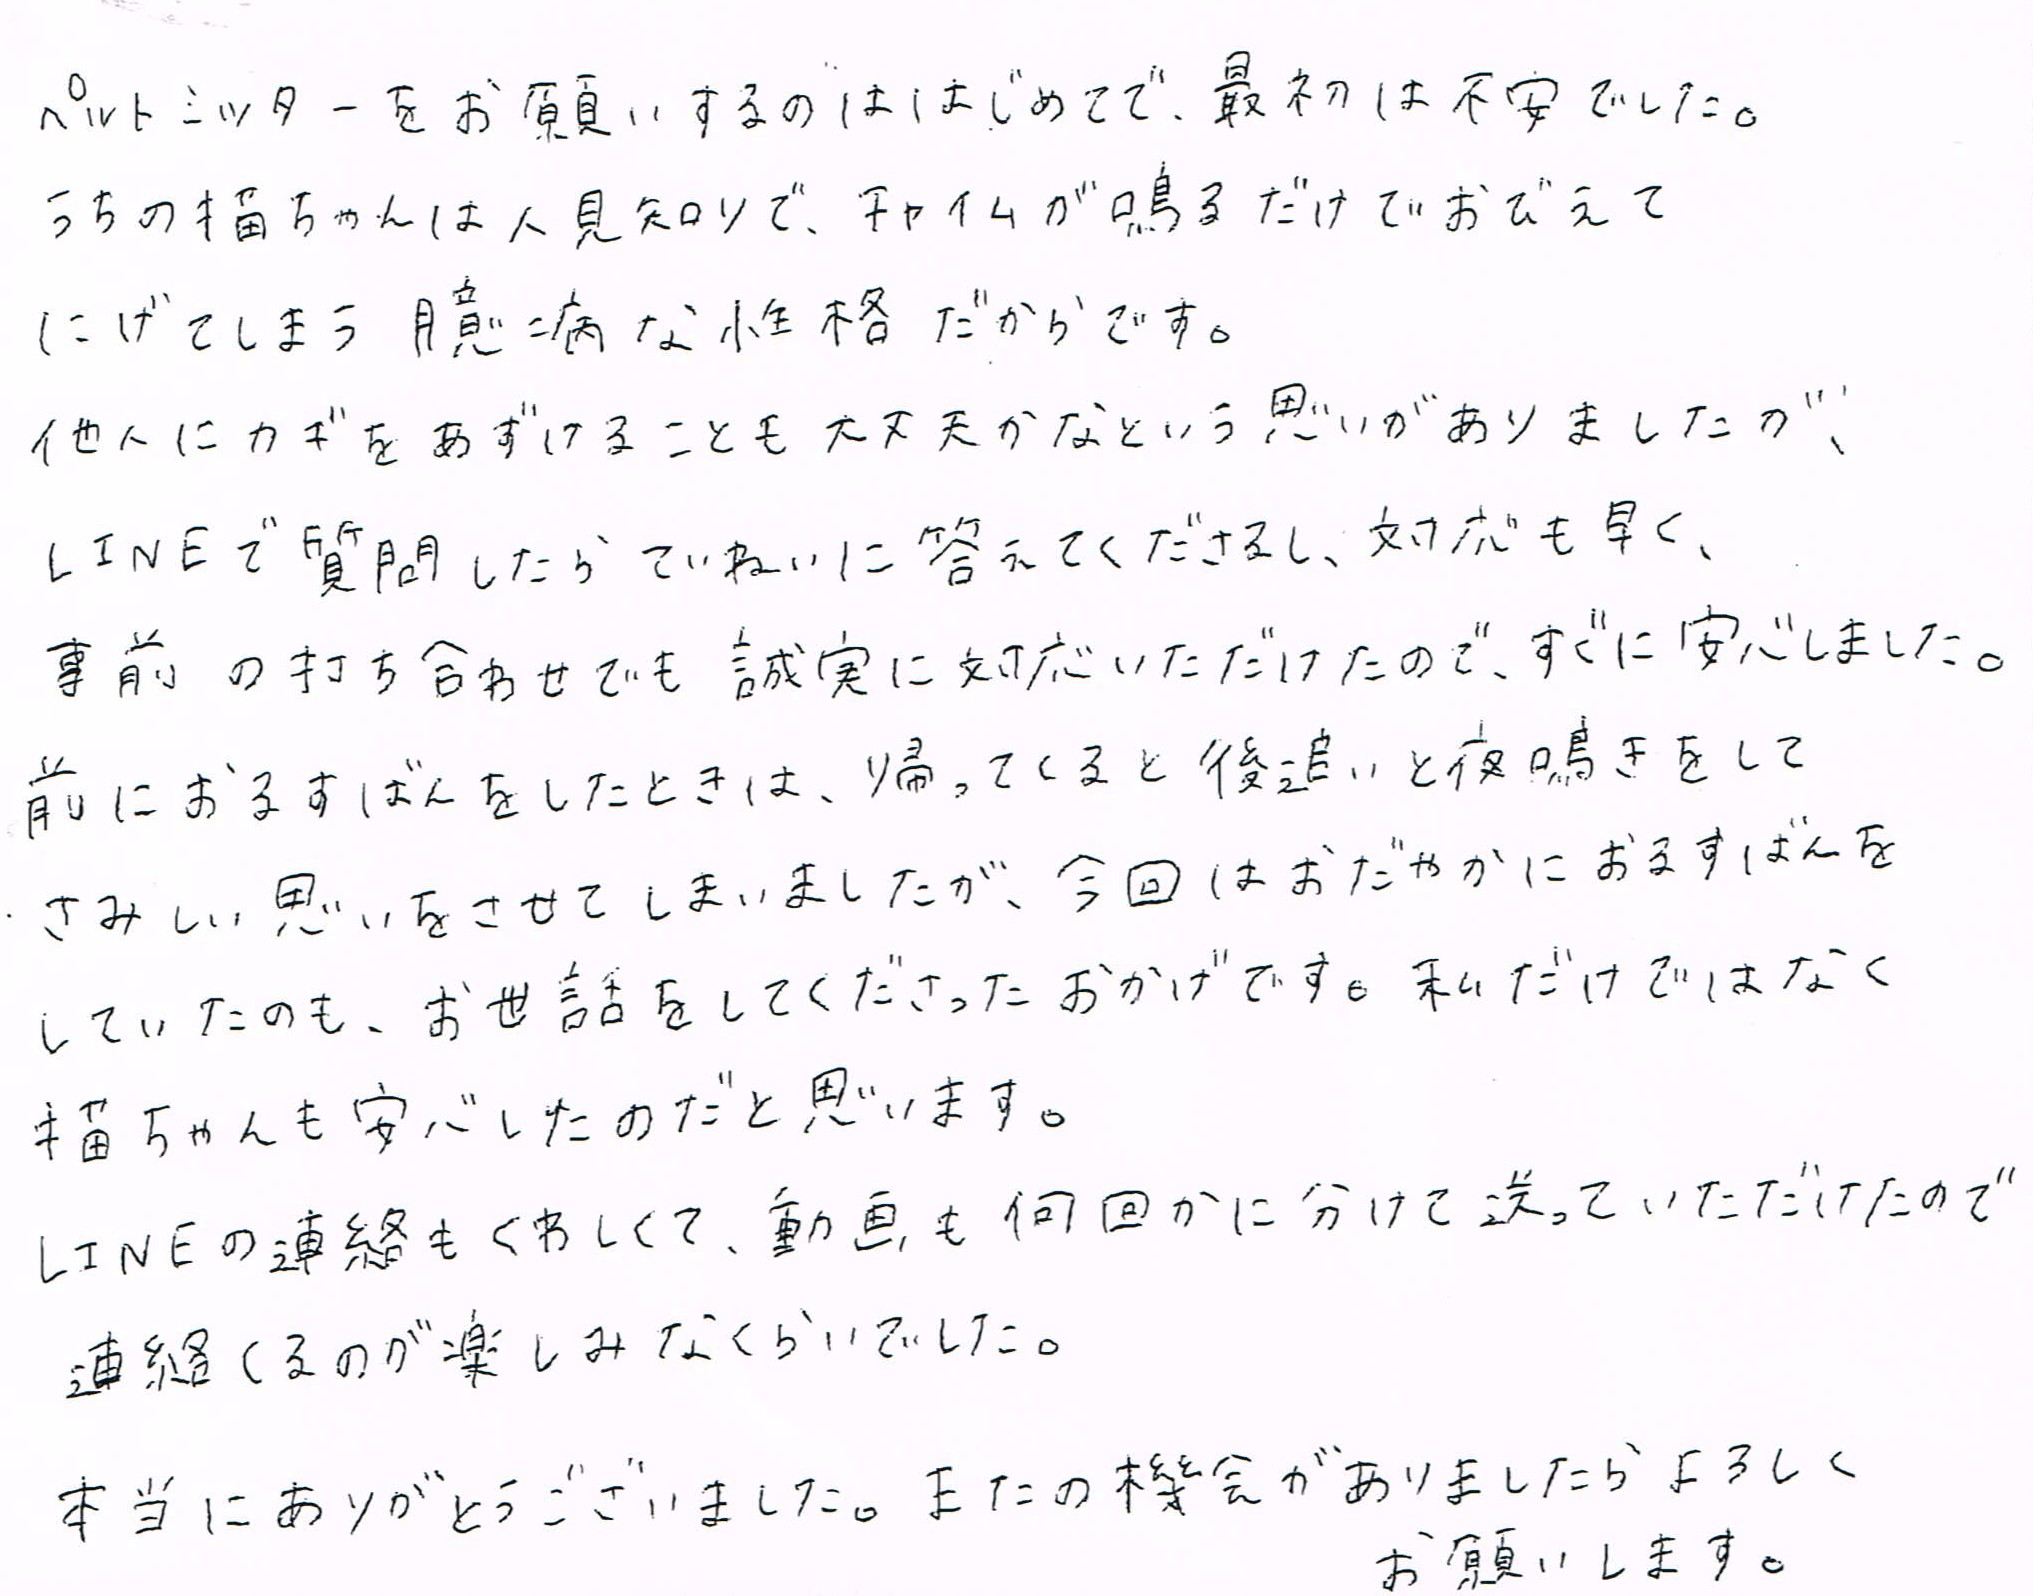 ペットシッターをお願いするのははじめてで、最初は不安でした。
うちの猫ちゃんは人見知りで、チャイムが鳴るだけでおびえて
にげてしまう臆病な性格だからです。
他人にカギをあずけることも大丈夫かなという思いがありましたが、
LINEで質問したらていねいに答えてくださるし、対応も早く、
事前の打ち合わせでも誠実に対応いただけたので、すぐに安心しました。
前におるすばんをしたときは、帰ってくると後追いと夜鳴きをして
さみしい思いをさせてしまいましたが、今回はおだやかにおるすばんを
していたのも、お世話をしてくださったおかげです。私だけではなく
猫ちゃんも安心したのだと思います。
LINEの連絡もくわしくて、動画も何回かに分けて送っていただけたので
連絡くるのが楽しみなくらいでした。
本当にありがとうございました。またの機会がありましたらよろしく
お願いします。